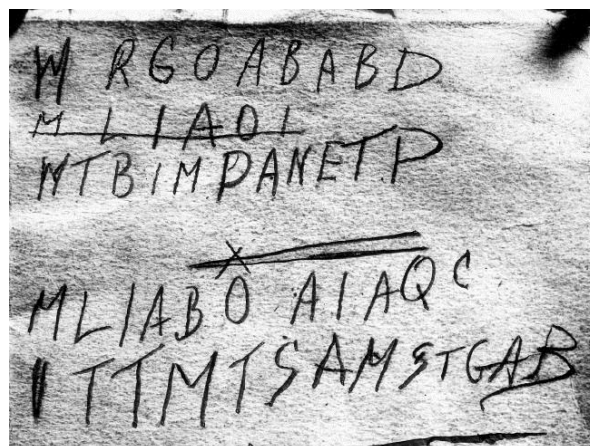 W RGOABABD
MLIAOI
WTBIMPANETP
X
MLIABO AIAQC
ITTMTSAMSTGAB